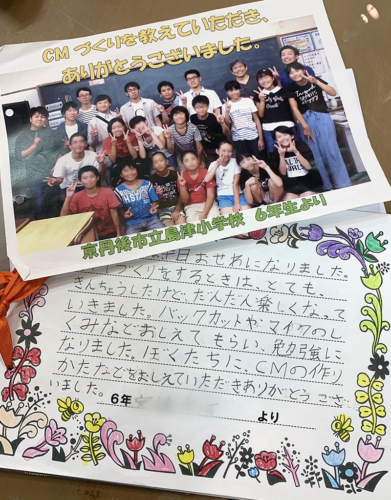 CMづくりを教えていただき、
ありがとうございました。
京丹後市立島津小学校 6年生より
日おせわになりました。
づくりをするときは、とても
きんちょうしたけど、だんだん楽しくなって
いきました。バックカットや、マイクのし
くみなどおしえてもらい、勉強に
なりました。ぼくたちに、CMの作り
かたなどをおしえていただきありがとうござ
いました。
6年
より